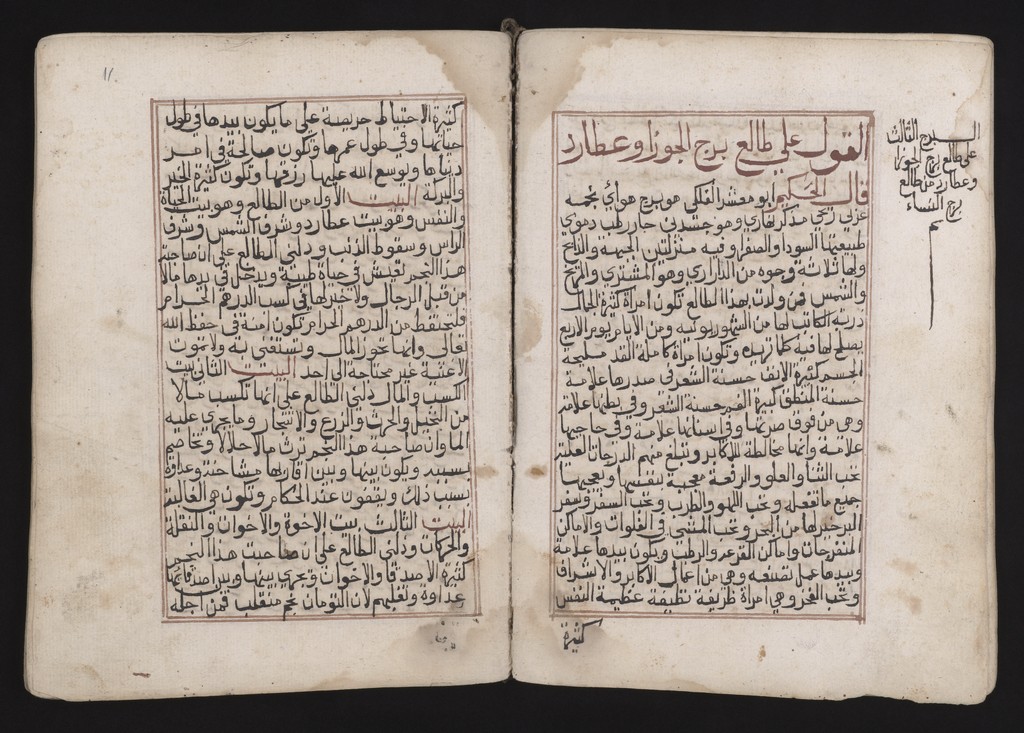 القول على طالع برج الجوزا وعطارد
قال الحكيم ابو معشر الفلكي هو برج هوائي نجمه
مذكر نهاري وهو جسدين حار رطب دموي
طبيعتها السودا والصفرا وفيه منزلتين الجبهة والذابح
ولها ثلاثة وجوه من الذراري وهو المشتري والمريخ
والشمس فمن ولدت بهذا الطالع تكون امراة كثيرة المال
لها من الشهور يونيه ومن الايام يوم الاربع
يصلح لها فيه كلما تريده وتكون امراة كاملة القد مليحة
الجسم كثيرة الانف حسنة الشعر في صدرها علامة
حسنة المنطق كبيرة الفم حسنة الشعر وفي بطنها علامة
وهي من فوق صرتها وفي اسنانها علامة وفي حاجبها
علامة وانها مخالطة للاكابر وتبلغ منهم الدرجات العلية
تحب الثنا والعلو والرفعة معجبة بنفسها ويعجبها
جميع ما تفعله وتحب اللهو والطرب وتحب السفر وسفر
البر خير لها من البحر وتحب المشي في الفلوات والاماكن
المتفرجات واماكن القرعه والرطب ويكون بيدها علامة
وبيدها عمل تصنعه وهي من اعمال الاكابر والاشراف
وتحب الفخر وهي امراة ظريفة نظيفة عظيمة النفس
كثيرة
البرج الثالث
على طالع برج الجوزا
وعطارد من طالع
برج النساء
تم
١١
كثيرة الاحتياط حريصة على ما يكون بيدها في طول
حياتها وفي طول عمرها وتكون صالحة في امر
دنياها ويوسع الله عليها رزقها وتكون كثيرة الخير
والبركة البيت الاول من الطالع وهو بيت الحياة
والنفس وهو بيت عطارد وشرف الشمس وشرف
الراس وسقوط الذنب ودلني الطالع على ان صاحبة
هذا النجم تعيش في حياة طيبة ويدخل في يدها مالا
من قبل الرجال ولا خير لها في كسب الدرهم الحرام
فلتحتفظ من الدرهم الحرام تكون امنة في حفظ الله
تعالى وانها تحوز المال وتستغني به ولا تموت
الا غنية غير محتاجة الى احد البيت الثاني بيت
الكسب والمال دلني الطالع على انها تكسب مالا
من النخل والحرث والزرع والاتجار وما يجري عليه
الما وان صاحبة هذا النجم ترث مالا حلالا وتخاصم
بسببه ويكون بينها وبين اقاربها مشاحنة وعداوة
بسبب ذلك ويقفون عند الحكام وتكون هي الغالبة
البيت الثالث بيت الاخوة والاخوان والنقلة
والحركات ودلني الطالع على ان صاحبت هذا النجم
كثيرة الاصدقا والاخوان ويجري بينها وبين اصدقائها
عداوة وتغلبهم لان التومان نجم منقلب فمن اجله